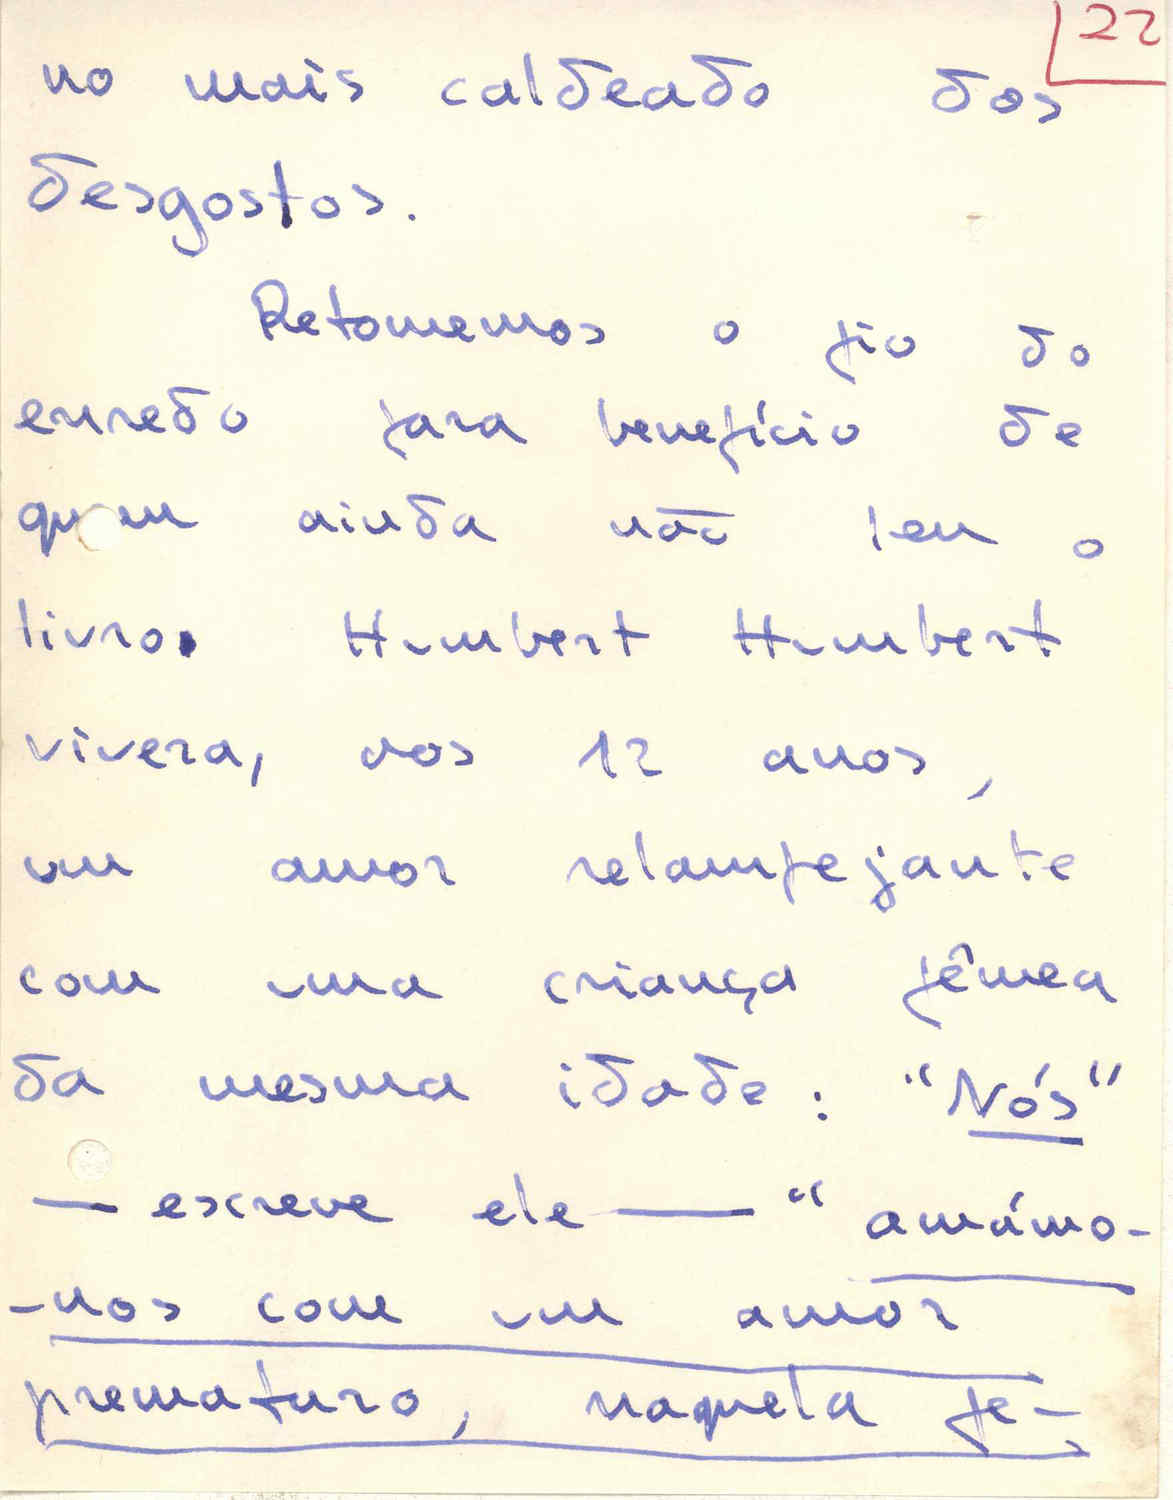 22
no mais caldeado dos
desgostos.
Retomemos o fio do
enredo para benefício de
quem ainda não leu o
livro. Humbert Humbert
vivera, aos 12 anos,
um amor relampejante
com uma criança fêmea
da mesma idade: "Nós"
— escreve ele — "amámo-
-nos com um amor
prematuro, naquela fe-